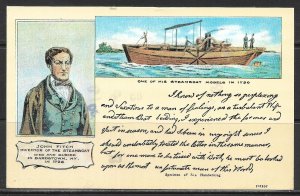 ONE OF HIS STEAMBOAT MODELS IN 1790
JOHN FITCH
INVENTOR OF THE STEAMBOAT
DIED AND BURIED
IN BARDSTOWN, KY.
IN 1798
I know of nothing so perplexing
and Vexatious to a man of feelings, as a turbulant Wife
and Steam Boat building. I experienced the former and
quit in season, and had I been in my right senses I
should undoubtedly treated the latter in the same manner,
but for one man to be teased with Both, he must be looked
upon as the most unfortunate man of this World.
Specimen of his Handwriting